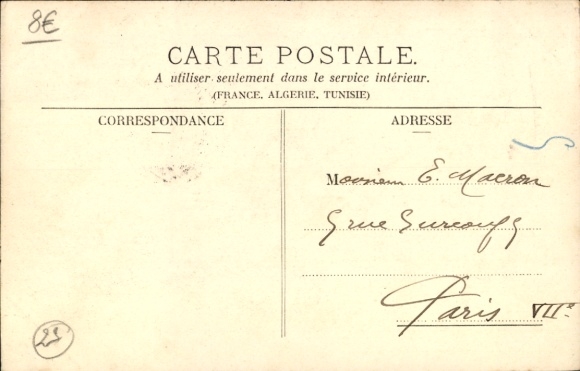 8€
CARTE POSTALE.
A utiliser seulement dans le service intérieur.
(FRANCE, ALGERIE, TUNISIE)
CORRESPONDANCE
ADRESSE
Monsieur E. Macron
rue Surcouf
Paris VIIe
25